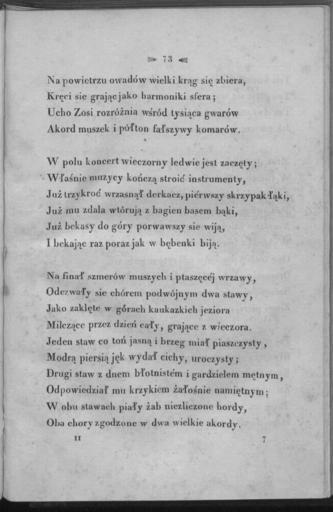 73
Na powietrzu owadów wielki krąg się zbiera,
Kręci sie grając jako harmoniki sfera;
Ucho Zosi rozróżnia wśród tysiąca gwarów
Akord muszek i półton fałszywy komarów.
W polu koncert wieczorny ledwie jest zaczęty;
Właśnie muzycy kończą stroić instrumenty,
Już trzykroć wrzasnął derkacz, piérwszy skrzypak łąki,
Już mu zdala wtórują z bagien basem bąki,
Już bekasy do góry porwawszy sie wiją,
I bekając raz poraz jak w bębenki biją.
Na finał szmerów muszych i ptaszęcéj wrzawy,
Odezwały sie chórem podwójnym dwa stawy,
Jako zaklęte w górach kaukazkich jeziora
Milczące przez dzień cały, grające z wieczora.
Jeden staw co toń jasną i brzeg miał piaszczysty,
Modrą piersią jęk wydał cichy, uroczysty;
Drugi staw z dnem błotnistém i gardzielem mętnym,
Odpowiedział mu krzykiem żałośnie namiętnym;
W obu stawach piały żab niezliczone hordy,
Oba chory zgodzone w dwa wielkie akordy.
II 7